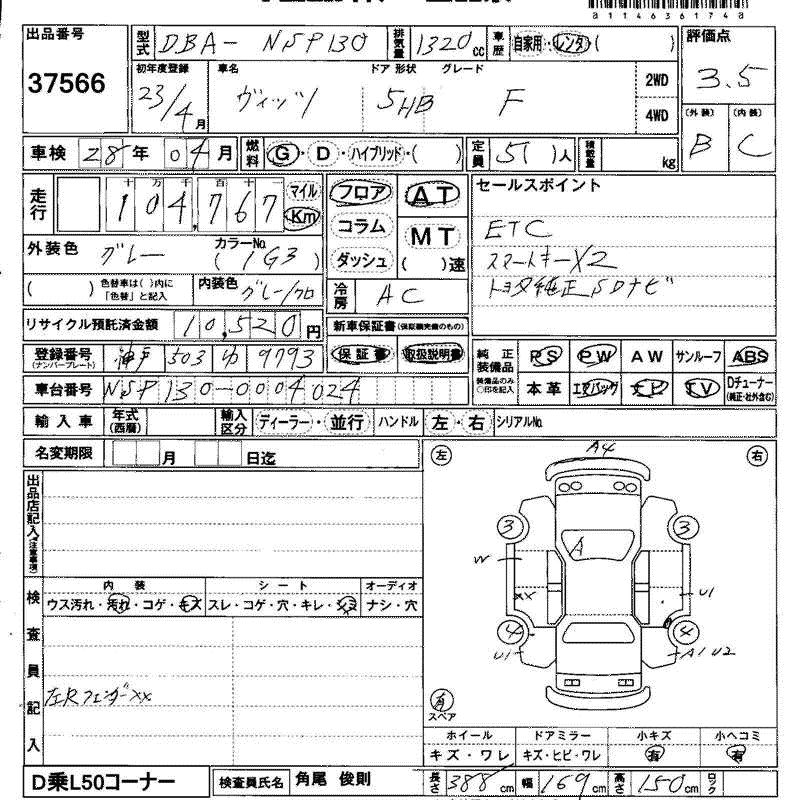 81146361740
出品番号
37566
型式 DBA- NSP130 排気量 1320cc 車歴 自家用・レンタ( )
評価点
3.5
初年度登録 23/4月
車名 ヴィッツ
ドア 形状 5HB
グレード F
2WD
4WD
(外装) B (内装) C
車検 28年 04月 燃料 G・D・ハイブリッド・( ) 定員 5( )人 積載量 kg
走行 十万千百十 104,767 マイル Km
フロア コラム ダッシュ
AT MT ( )速
セールスポイント
ETC
スマートキーX2
トヨタ純正SDナビ
外装色 グレー カラーNo. (1G3)
( ) 色替車は( )内に「色替」と記入 内装色 グレー/クロ
冷房 AC
リサイクル預託済金額 10,520円
新車保証書(保証継続のもの)
保証書 取扱説明書
登録番号(ナンバープレート) 神戸 503 ゆ 9793
純正装備品 PS PW AW サンルーフ ABS
装備品のみ○印を記入 本革 エアバッグ ナビ TV Dチューナー(純正・社外含む)
車台番号 NSP130-0004024
輸入車 年式(西暦) 輸入区分 ディーラー・並行 ハンドル 左・右 シリアルNo.
名変期限 月 日迄
出品店記入(注意事項)
左 右
A4
3 3
A
W
XX U1
4 4
U1 A1 U2
有
スペア
検査員記入
内装 シート オーディオ
ウス汚れ・汚れ・コゲ・キズ スレ・コゲ・穴・キレ・シミ ナシ・穴
左Rフェンダーxx
ホイール ドアミラー 小キズ 小ヘコミ
キズ・ワレ キズ・ヒビ・ワレ 有 有
D乗L50コーナー 検査員氏名 角尾 俊則
長さ 388cm 幅 169cm 高さ 150cm ロック